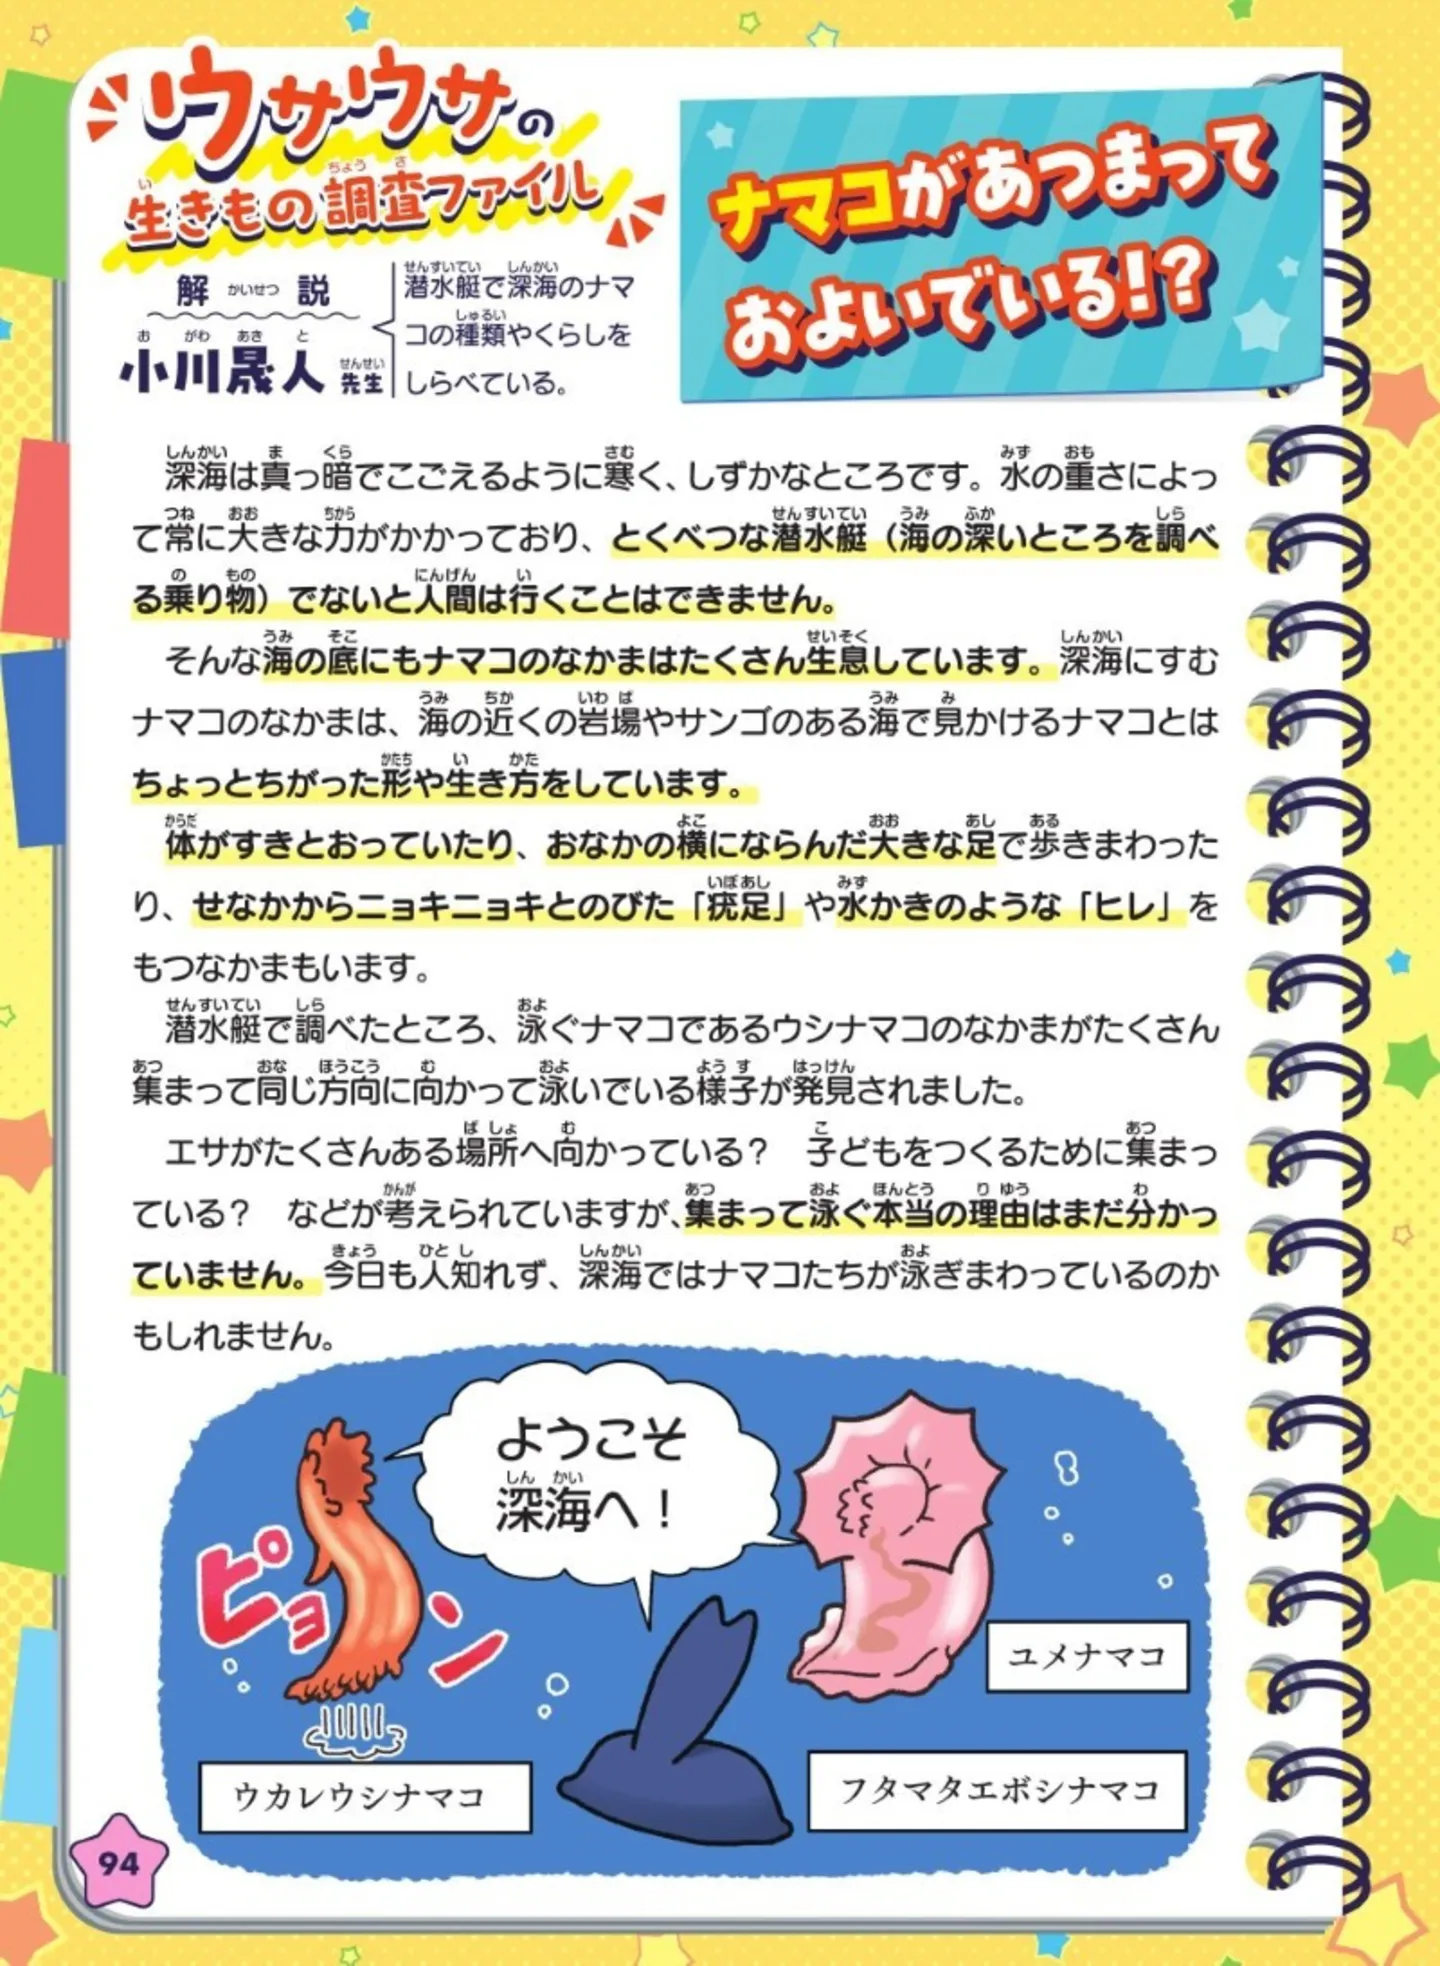 ウサウサの
生きもの調査ファイル
解説
小川晟人先生
潜水艇で深海のナマ
コの種類やくらしを
しらべている。
ナマコがあつまって
およいでいる!?
深海は真っ暗でこごえるように寒く、しずかなところです。水の重さによっ
て常に大きな力がかかっており、とくべつな潜水艇（海の深いところを調べ
る乗り物）でないと人間は行くことはできません。
そんな海の底にもナマコのなかまはたくさん生息しています。深海にすむ
ナマコのなかまは、海の近くの岩場やサンゴのある海で見かけるナマコとは
ちょっとちがった形や生き方をしています。
体がすきとおっていたり、おなかの横にならんだ大きな足で歩きまわった
り、せなかからニョキニョキとのびた「疣足」や水かきのような「ヒレ」を
もつなかまもいます。
潜水艇で調べたところ、泳ぐナマコであるウシナマコのなかまがたくさん
集まって同じ方向に向かって泳いでいる様子が発見されました。
エサがたくさんある場所へ向かっている？　子どもをつくるために集まっ
ている？　などが考えられていますが、集まって泳ぐ本当の理由はまだ分かっ
ていません。今日も人知れず、深海ではナマコたちが泳ぎまわっているのか
もしれません。
ようこそ
深海へ！
ピョン
ユメナマコ
ウカレウシナマコ
フタマタエボシナマコ
94